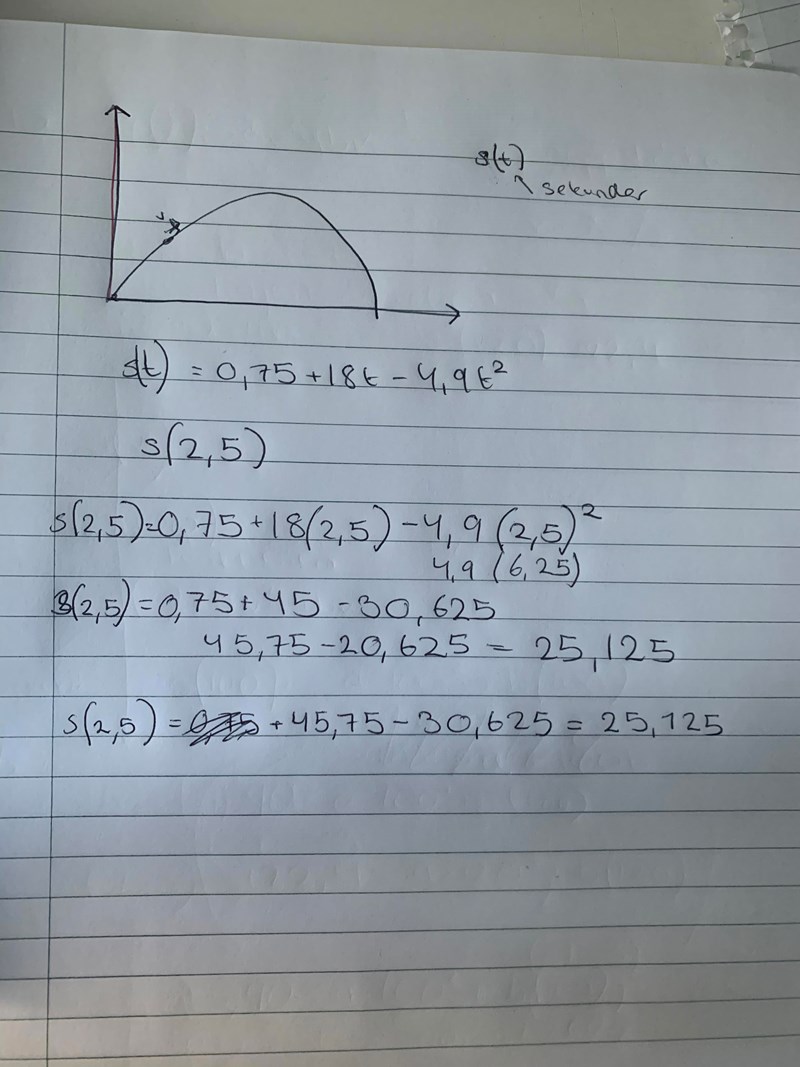 s(t)
sekunder
s(t) = 0,75 + 18t - 4,9t²
s(2,5)
s(2,5)=0,75+18(2,5) - 4,9 (2,5)²
4,9 (6,25)
s(2,5) = 0,75 + 45 - 30,625
45,75 - 20,625 = 25,125
s(2,5) = + 45,75 - 30,625 = 25,125